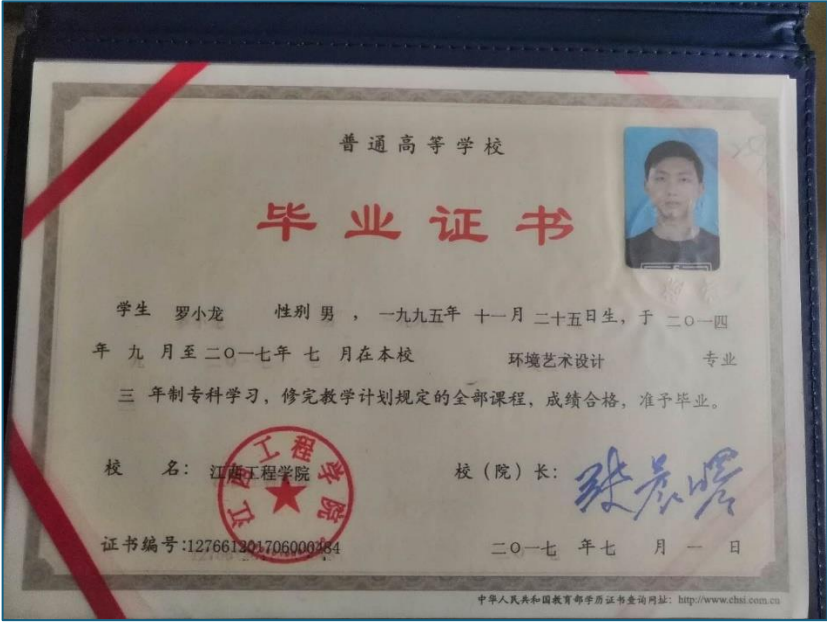 普通高等学校
毕业证书
学生 罗小龙 性别 男 ，一九九五年 十一月 二十五日生，于 二〇一四
年 九 月至二〇一七年 七 月在本校 环境艺术设计 专业
三 年制专科学习，修完教学计划规定的全部课程，成绩合格，准予毕业。
校 名：江西工程学院 校（院）长：
江西工程学院
证书编号:127661201706000484 二〇一七 年七 月 一 日
中华人民共和国教育部学历证书查询网址：http://www.chsi.com.cn